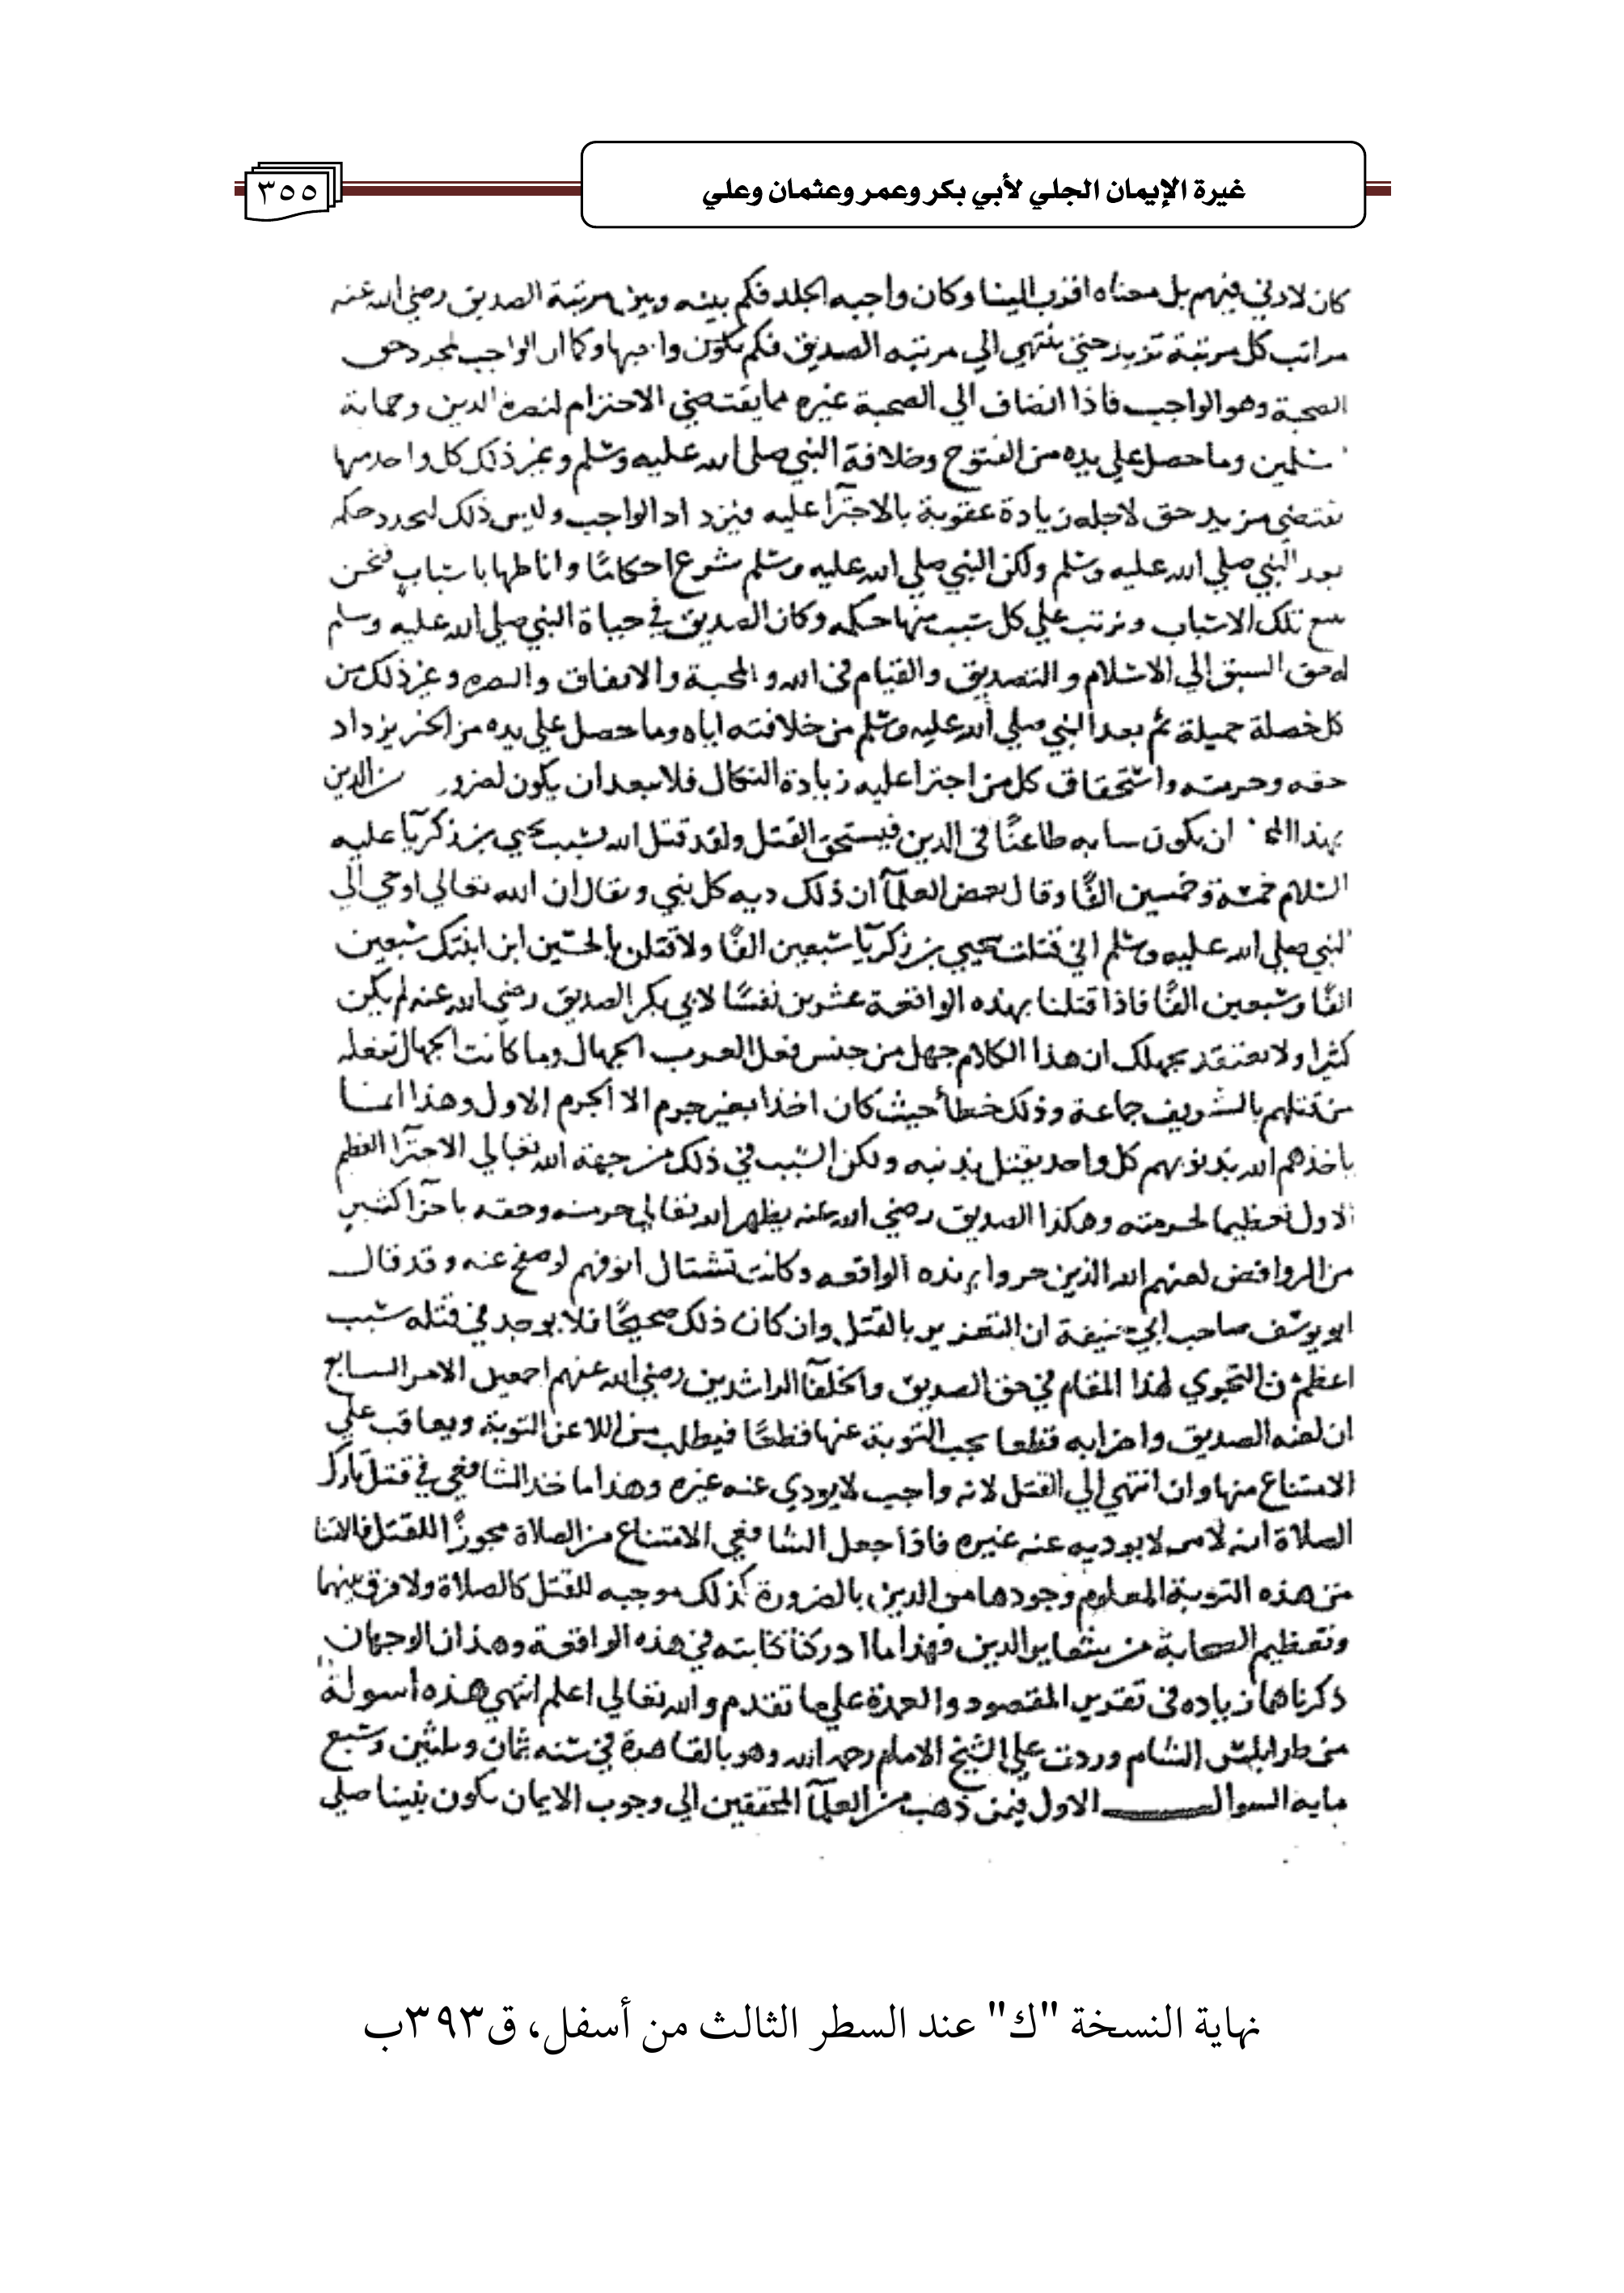 غيرة الإيمان الجلي لأبي بكر وعمر وعثمان وعلي
٣٥٥
كان لادني فيهم بل معناه اقرب الينا وكان واجبه الجلد فكم بينه وبين مرتبة الصديق رضي الله عنه
مراتب كل مرتبة تزيد حتى ينتهي الي مرتبه الصديق فكم يكون واجبها وكما ان الواجب لمجرد حق
الصحبة وهو الواجب فاذا انضاف الي الصحبة غيره مما يقتضي الاحترام لنصرة الدين وحماية
وما حصل علي يده من الفتوح وخلافة النبي صلي الله عليه وسلم وغير ذلك كل واحد منها
يقتضي مزيد حق لاجله زيادة عقوبة بالاجترا عليه فيزداد الواجب وليس ذلك لتجدد حكم
بعد النبي صلي الله عليه وسلم ولكن النبي صلي الله عليه وسلم شرع احكاما واناطها باسباب فنحن
تلك الاسباب ونرتب علي كل سبب منها حكمه وكان الصديق في حياة النبي صلي الله عليه وسلم
له حق السبق الي الاسلام والتصديق والقيام في الله والمحبة والانفاق والنصره وغير ذلك من
كل خصلة جميلة ثم بعد النبي صلي الله عليه وسلم من خلافته اياه وما حصل علي يده من الخير يزداد
حقه وحرمته واستحقاق كل من اجترا عليه زيادة النكال فلا يبعد ان يكون من الدين
بهذا ان يكون سابه طاعنا في الدين فيستحق القتل ولقد قتل الله بسبب يحيي بن زكريا عليه
السلام خمسة وخمسين الفا وقال بعض العلمآ ان ذلك ديه كل نبي ويقال ان الله تعالي اوحي الي
النبي صلي الله عليه وسلم اني قتلت بيحيي بن زكريا سبعين الفا ولاقتلن بالحسين ابن ابنتك سبعين
الفا وسبعين الفا فاذا قتلنا بهذه الواقعة عشرين نفسا لابي بكر الصديق رضي الله عنه لم يكن
كثيرا ولا تعتقد بجهلك ان هذا الكلام جهل من جنس فعل العرب الجهال وما كانت الجهال تفعله
من قتلهم بالشريف جماعة وذلك خطأ حيث كان اخذا بغير جرم الا الجرم الاول وهذا انما
ياخذهم الله بذنوبهم كل واحد يقتل بذنبه ولكن السبب في ذلك من جهة الله تعالي الاجترا العظيم
الاول تعظيما لحرمته وهكذا الصديق رضي الله عنه يظهر الله تعالي حرمته وحقه كثير
من الروافض لعنهم الله الذين الواقعه وكانت انوفهم لو صفح عنه وقد قال
ابو يوسف صاحب ابي حنيفة ان التعزير بالقتل وان كان ذلك صحيحا فلا يوجد في قتله سبب
اعظم من التجري لهذا المقام في حق الصديق والخلفآ الراشدين رضي الله عنهم اجمعين الامر السابع
ان لعنه الصديق واضرابه قطعا يجب التوبة عنها قطعا فيطلب من اللاعن التوبة ويعاقب علي
الامتناع منها وان انتهي الي القتل لانه واجب لا يودي عنه غيره وهذا ماخذ الشافعي في قتل تارك
الصلاة انه لامر لا يوديه عنه غيره فاذا جعل الشافعي الامتناع من الصلاة مجوزا للقتل
من هذه التوبة المعلوم وجودها من الدين بالضرورة كذلك موجبه للقتل كالصلاة ولا فرق بينهما
وتعظيم الصحابة من شعاير الدين فهذا ما ادركنا كتابته في هذه الواقعة وهذان الوجهان
ذكرناهما زياده في تقدير المقصود والعمدة علي ما تقدم والله تعالي اعلم انتهي هذه اسولة
من طرابلس الشام وردت علي الشيخ الامام رحمه الله وهو بالقاهرة في سنه ثمان وثلثين وسبع
مايه السوال الاول فيمن ذهب من العلمآ المحققين الي وجوب الايمان بكون نبينا صلي
نهاية النسخة "ك" عند السطر الثالث من أسفل، ق٣٩٣ب